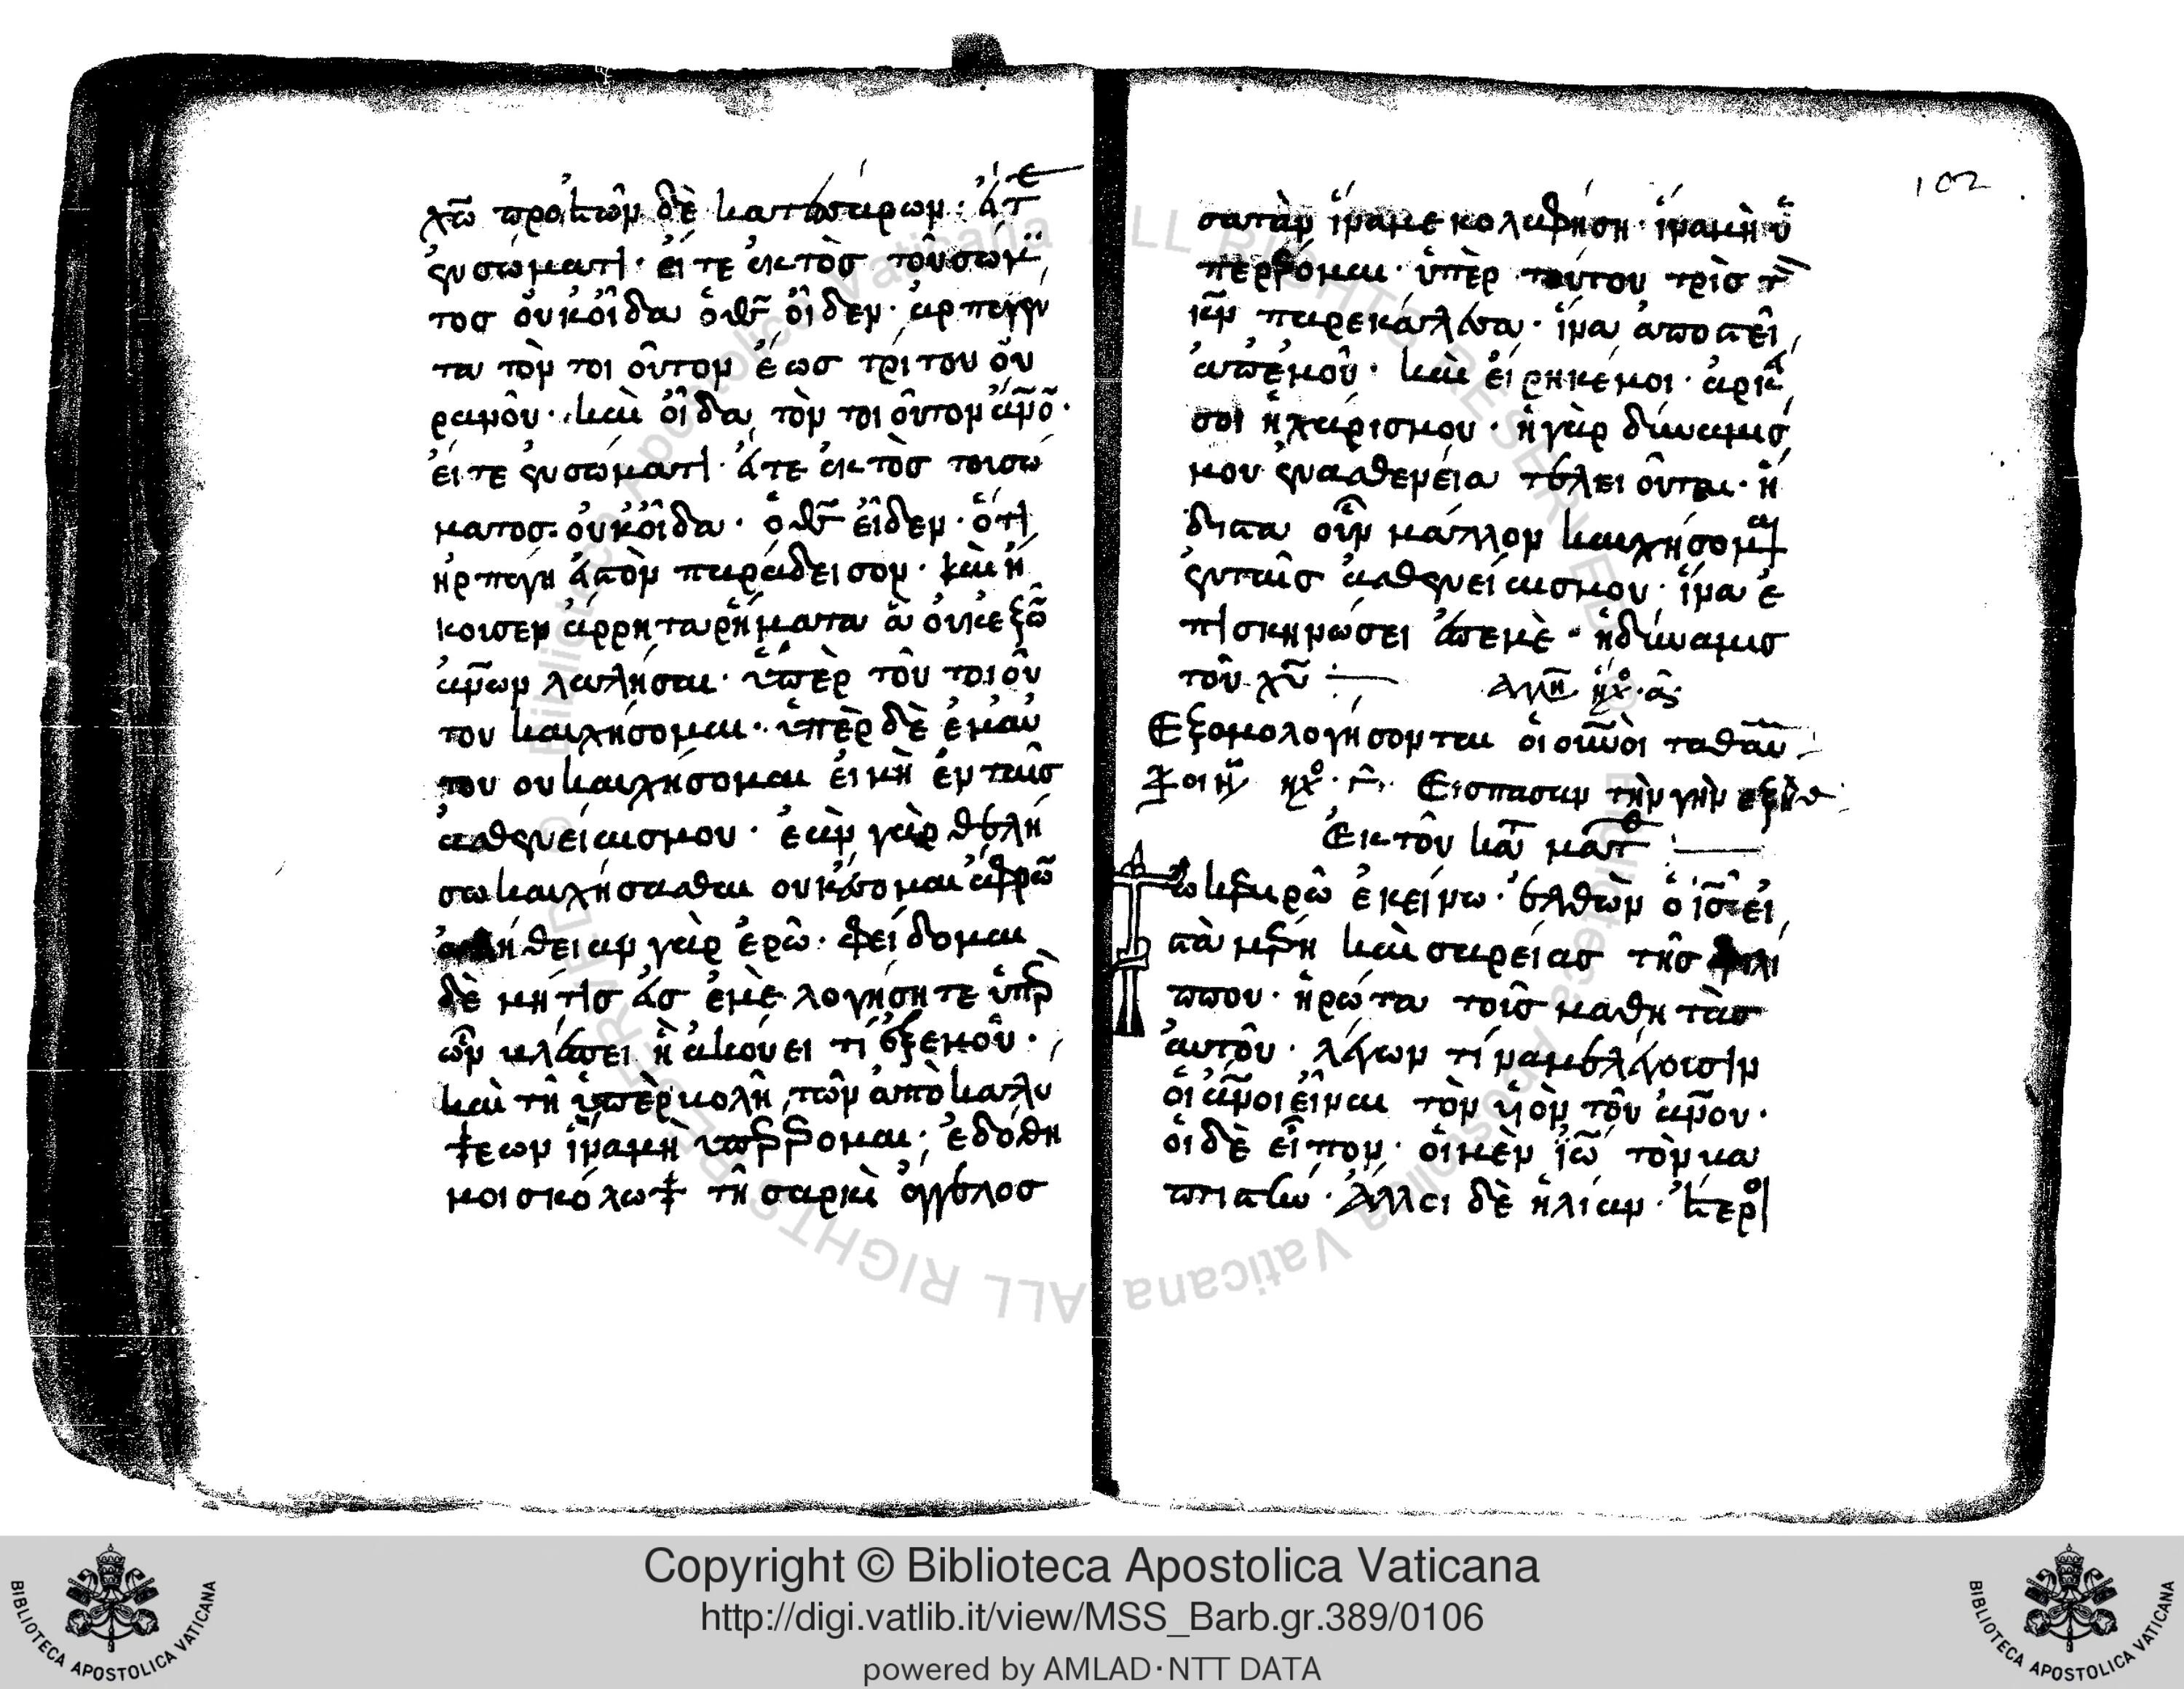 χω̅ προ ἐτῶν δὲ κατεσσάρων· εἴτε
ἐν σώματι· εἴτε ἐκτὸσ τοῦ σώμα
τοσ οὐκ οἶδα ὁ θ̅ς̅ οἶδεν· ἁρπαγέν
τα τὸν τοιοῦτον ἕωσ τρίτου οὐ
ρανοῦ· καὶ οἶδα τὸν τοιοῦτον ἀν̅ο̅ν·
εἴτε ἐν σώματι· εἴτε ἐκτὸσ τοῦ σώ
ματοσ· οὐκ οἶδα· ὁ θ̅ς̅ εἶδεν· ὅτι
ἡρπάγη εἰς τὸν παράδεισον· καὶ ἤ
κουσεν ἄρρητα ρήματα ἃ οὐκ ἐξὸ̅
ἀν̅ων λαλῆσαι· ὑπὲρ τοῦ τοιού
του καυχήσομαι· ὑπὲρ δὲ ἐμαυ
του ου καυχήσομαι εἰ μὴ ἐν ταῖσ
ἀσθενείαισ μου· ἐὰν γὰρ θελή
σω καυχήσασθαι ουκ ἔσομαι ἄφρω̅
ἀλήθειαν γὰρ ἐρῶ· φείδομαι
δὲ μή τισ εἰσ ἐμὲ λογήσητε ὑπὲρ
ὧν βλέπει ἢ ἀκούει τί ἐξ ἐμοῦ·
καὶ τῆ ὑπὲρβολῆ τῶν ἀπὸκαλύ
ψεων ἵνα μὴ ὑπεραίρομαι· ἐδόθη
μοι σκόλωψ τῆ σαρκὶ ἄγγελοσ
102
σατὰν ἵνα με κολαφήση· ἵνα μὴ ὑ
περαίρομαι· ὑπὲρ τούτου τρὶσ τὸν
κ̅ν̅ παρεκάλεσα· ἵνα ἀποστεῖ
ἀπ' ἐμοῦ· καὶ εἴρηκέ μοι· ἀρκεῖ
σοι ἡ χάρισ μου· ἡ γὰρ δύναμισ
μου ἐν ἀσθενεία τελειοῦται· ἥ
διστα οὖν μάλλον καυχήσομαι
ἐν ταῖσ ἀσθενείαισ μου· ἵνα ἐ
πισκηνώσει ἐπ' ἐμὲ· ἡ δύναμισ
τοῦ χ̅υ̅ Ἀλλη ἦχο· α·
Ἐξομολογήσονται οἱ ου̅νοι τα θαυ
ἦχο· Εισ πασαν τὴν γὴν εξηλθ
Ἐκ τοῦ κατ ματθ
Τῶ καιρῶ ἐκείνω· ἐλθὼν ὁ ι̅ς̅ εἰ
στὰ μέρη καισαρείασ τῆσ φιλί
ππου· ἠρώτα τοὺσ μαθητὰσ
αὐτοῦ· λέγων τίνα με λέγουσιν
οἱ ἀν̅οι εἶναι τὸν υἱὸν τοῦ ἀν̅ου·
οἱ δὲ εἶπον· οἱ μὲν ἰω̅ τὸν βα
πτιστὴν· Ἄλλοι δὲ ἡλίαν· ἕτεροι
Copyright © Biblioteca Apostolica Vaticana
http://digi.vatlib.it/view/MSS_Barb.gr.389/0106
powered by AMLAD·NTT DATA